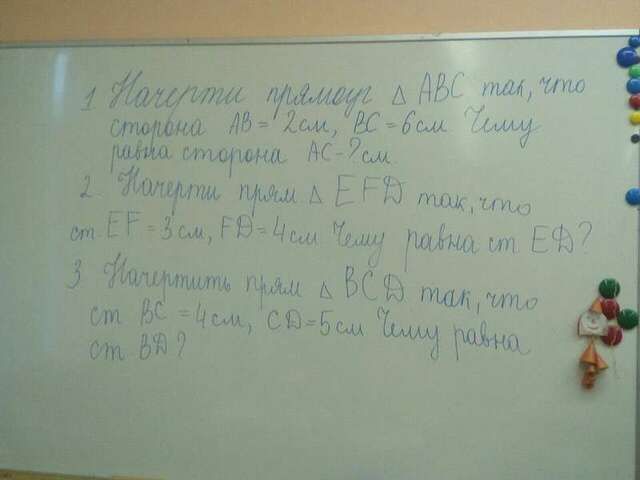 1 Начерти прямоуг △ ABC так, что
сторона AB = 2см, BC = 6см Чему
равна сторона AC - ? см.
2. Начерти прям △ EFD так, что
ст. EF = 3см, FD = 4см Чему равна ст ED?
3 Начертить прям △ BCD так, что
ст BC = 4см, CD = 5см Чему равна
ст. BD?